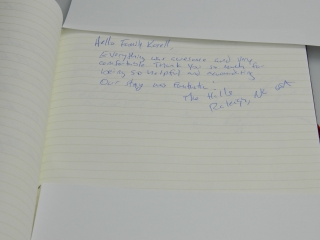 Hello Family
Everything was awesome and very
comfortable. Thank you so much for
being so helpful and
Our stay was Fantastic.
The Hills
Raleigh, NC USA